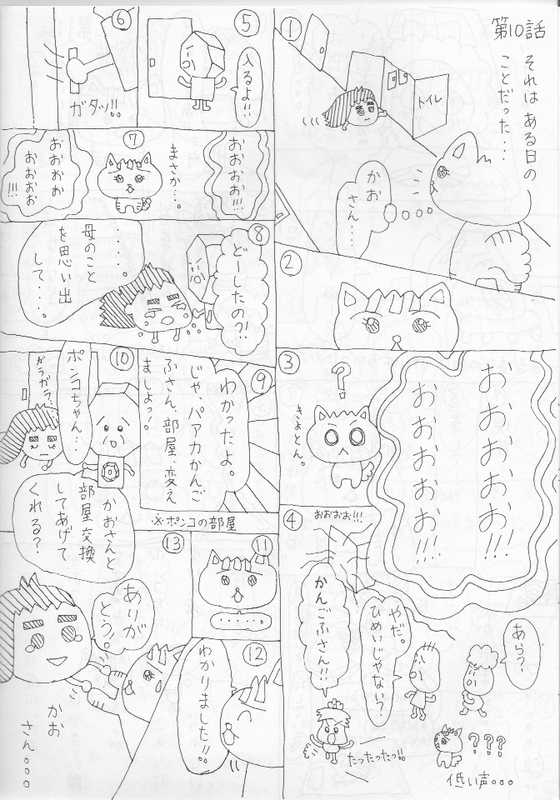 第10話
それはある日の
ことだった・・・
①
トイレ
かお
さん・・・・
②
③
おおおおお!!!
おおおおお!!!
?
きょとん。
④
おおおお!!!
あら?
やだ。
ひめいじゃない?
かんごふさん!!
たったったっ!!
???
低い声。。。
⑤
入るよ!!
⑥
ガタッ!!
⑦
おおおお!!
まさか・・。
おおおお
おおおお
!!!
⑧
どーしたの?!
・・・・・
母のこと
を思い出
して・・・。
⑨
わかったよ。
じゃ、パアカかんご
ふさん、部屋、変え
ましょっ。
※ポンコの部屋
⑩
ガラガラ・・
ポンコちゃん・・
かおさんと
部屋交換
してあげて
くれる?
⑪
・・・・・
⑫
わかりました!!
⑬
ありが
とう。
かお
さん。。。